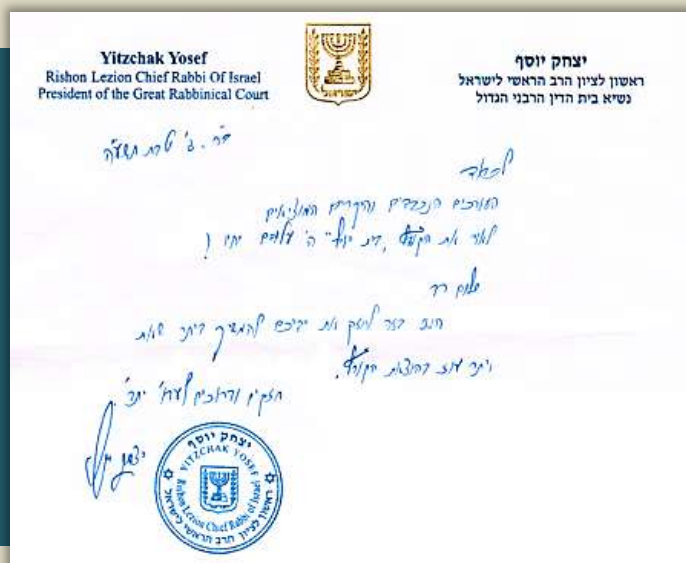 Yitzchak Yosef
Rishon Lezion Chief Rabbi Of Israel
President of the Great Rabbinical Court
ישראל
יצחק יוסף
ראשון לציון הרב הראשי לישראל
נשיא בית הדין הרבני הגדול
ב' טבת תשע"ה
לכבוד
העורכים הנכבדים והיקרים המוציאים
לאור את "בית יוסף" ה' עליהם יחיו
שלום רב
הנני בזה לחזק את ידיכם להמשיך ביתר שאת
ויתר עוז בהוצאת
חזקים וברוכים
יצחק יוסף
יצחק יוסף
YITZCHAK YOSEF
Rishon Lezion Chief Rabbi of Israel
ראשון לציון הרב הראשי לישראל